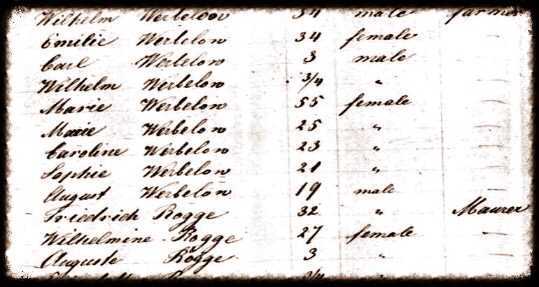 Wilhelm Werbelow 34 male farmer
Emilie Werbelow 34 female —
Carl Werbelow 3 male —
Wilhelm Werbelow 3/4 " —
Marie Werbelow 55 female —
Marie Werbelow 25 " —
Caroline Werbelow 23 " —
Sophie Werbelow 21 " —
August Werbelow 19 male —
Friedrich Rogge 32 " Maurer
Wilhelmine Rogge 27 female —
Auguste Rogge 3 " —